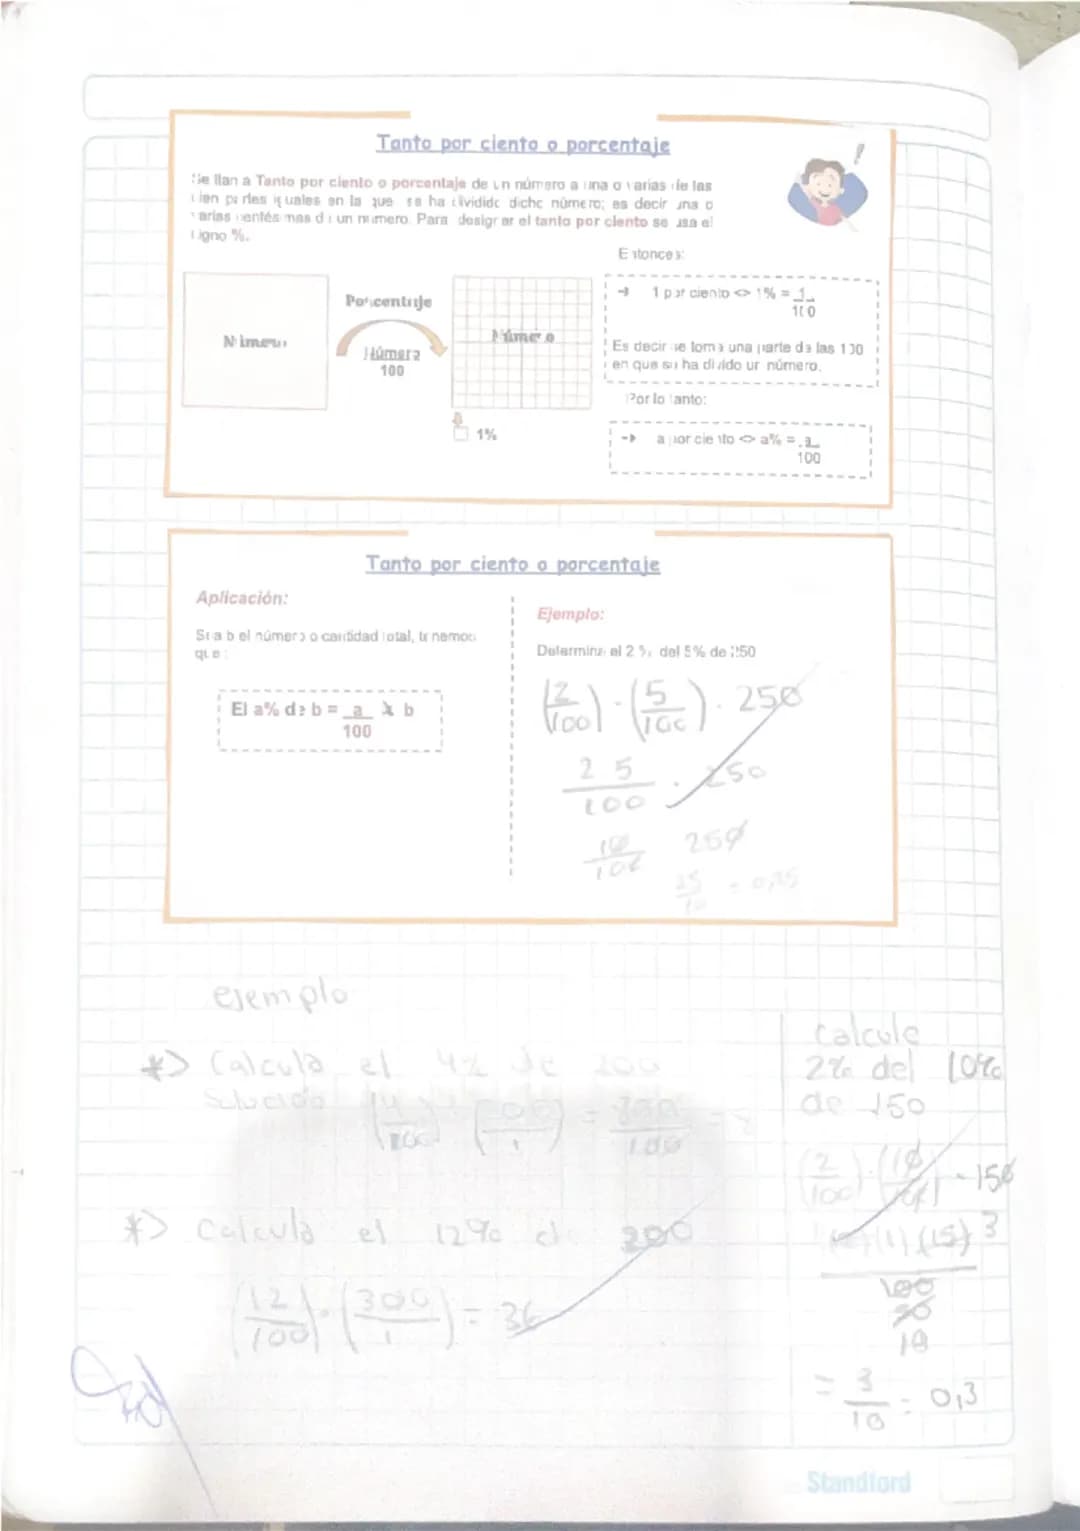 Tanto por ciento o porcentaje
Se llan a Tanto por ciento o porcentaje de un número a una o varias de las
cien partes iguales en la que se ha dividido dicho número; es decir una o
varias centésimas de un número. Para designar el tanto por ciento se usa el
signo %.
Entonces:
1 por ciento <> 1% = 1
100
Es decir se toma una parte de las 100
en que se ha divido un número.
Por lo tanto:
a por ciento <> a% = a
100
Número
Porcentaje
Número
100
Número
1%
Tanto por ciento o porcentaje
Aplicación:
Si a b el número o cantidad total, tenemos
que:
El a% de b = a x b
100
Ejemplo:
Determina el 2% del 5% de 250
(2/100) · (5/100) · 250
2 5
100 · 250
10
100 250
25
10 = 0,25
ejemplo
*> Calcula el 4% de 200
Solución (4/100) (200/1) = 800/100 = 8
*> Calcula el 12% de 300
(12/100) · (300/1) = 36
Calcule
2% del 10%
de 150
(2/100) · (10/100) · 150
(1) (15) 3
100
50
10
= 3/10 = 0,3
Standford